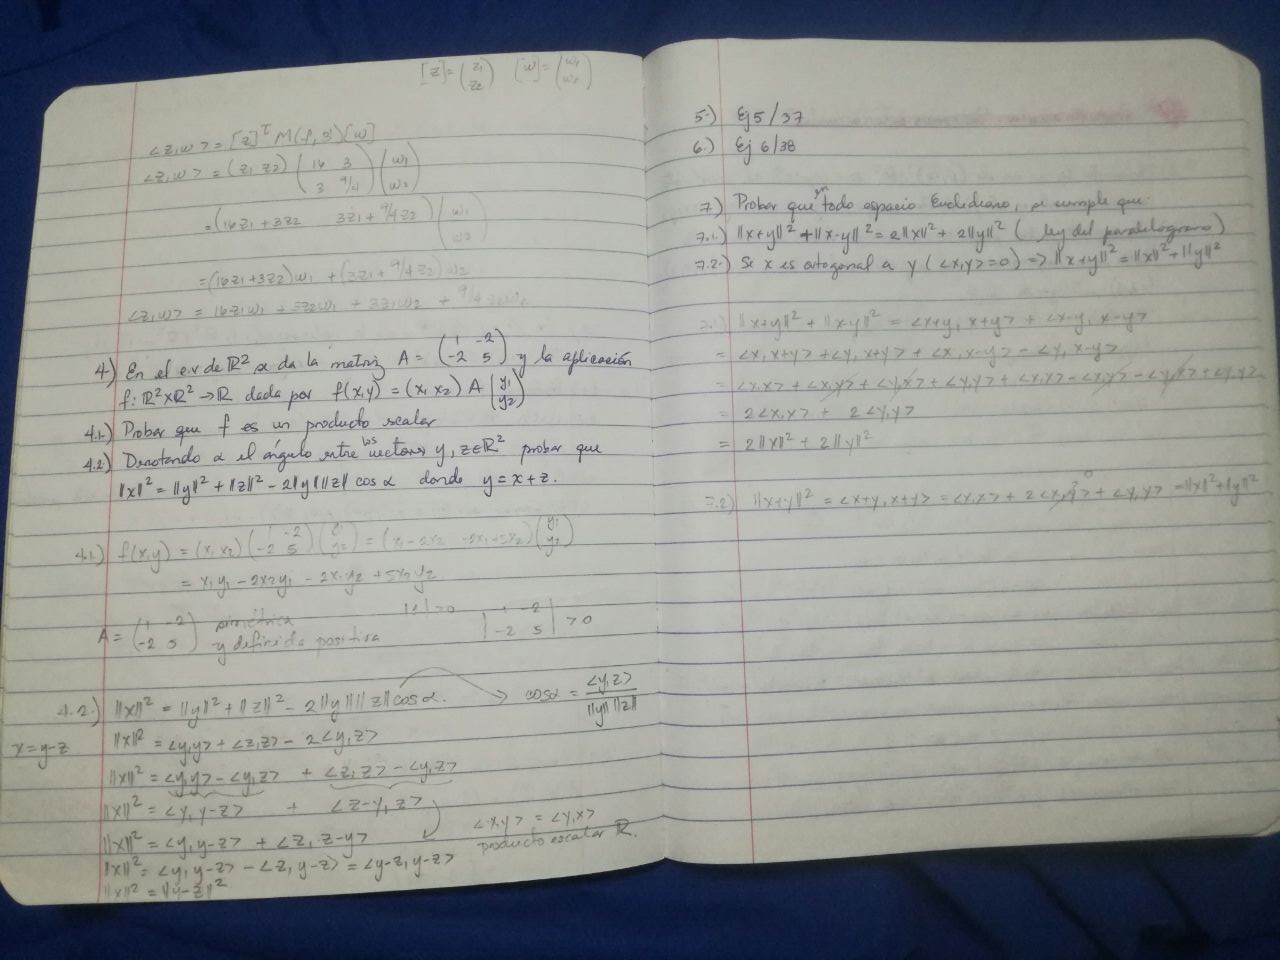 [z]=(z1 z2) [w]=(w1 w2)
<z,w> = [z]^T M(f,B)[w]
<z,w> = (z1 z2) (16 3 / 3 9/4) (w1 / w2)
= (16z1+3z2 3z1+9/4z2) (w1 / w2)
= (16z1+3z2)w1 + (3z1+9/4z2)w2
<z,w> = 16z1w1 + 3z2w1 + 3z1w2 + 9/4 z2w2
4) En el e.v de ℝ² se da la matriz A = (1 -2 / -2 5) y la aplicación
f: ℝ²xℝ² → ℝ dada por f(x,y) = (x1 x2) A (y1 / y2)
4.1.) Probar que f es un producto escalar
4.2.) Denotando α el ángulo entre los vectores y, z∈ℝ² probar que
||x||² = ||y||² + ||z||² - 2||y|| ||z|| cos α donde y = x+z.
4.1.) f(x,y) = (x1 x2) (1 -2 / -2 5) (y1 / y2) = (x1-2x2 -2x1+5x2) (y1 / y2)
= x1y1 - 2x2y1 - 2x1y2 + 5x2y2
A = (1 -2 / -2 5) simétrica y definida positiva |1|>0 |1 -2 / -2 5| >0
4.2.) ||x||² = ||y||² + ||z||² - 2||y|| ||z|| cos α. → cosα = <y,z> / ||y|| ||z||
x = y-z ||x||² = <y,y> + <z,z> - 2<y,z>
||x||² = <y,y> - <y,z> + <z,z> - <y,z>
||x||² = <y, y-z> + <z-y, z>
||x||² = <y, y-z> + <z, z-y> <x,y> = <y,x> producto escalar ℝ.
||x||² = <y, y-z> - <z, y-z> = <y-z, y-z>
||x||² = ||y-z||²
5.) Ej 5/37
6.) Ej 6/38
7) Probar que en todo espacio Euclidiano, se cumple que:
7.1.) ||x+y||² + ||x-y||² = 2||x||² + 2||y||² (ley del paralelogramo)
7.2.) Si x es ortogonal a y (<x,y>=0) => ||x+y||² = ||x||² + ||y||²
7.1) ||x+y||² + ||x-y||² = <x+y, x+y> + <x-y, x-y>
= <x, x+y> + <y, x+y> + <x, x-y> - <y, x-y>
= <x,x> + <x,y> + <y,x> + <y,y> + <x,x> - <x,y> - <y,x> + <y,y>
= 2<x,x> + 2<y,y>
= 2||x||² + 2||y||²
7.2) ||x+y||² = <x+y, x+y> = <x,x> + 2<x,y> 0 + <y,y> = ||x||² + ||y||²